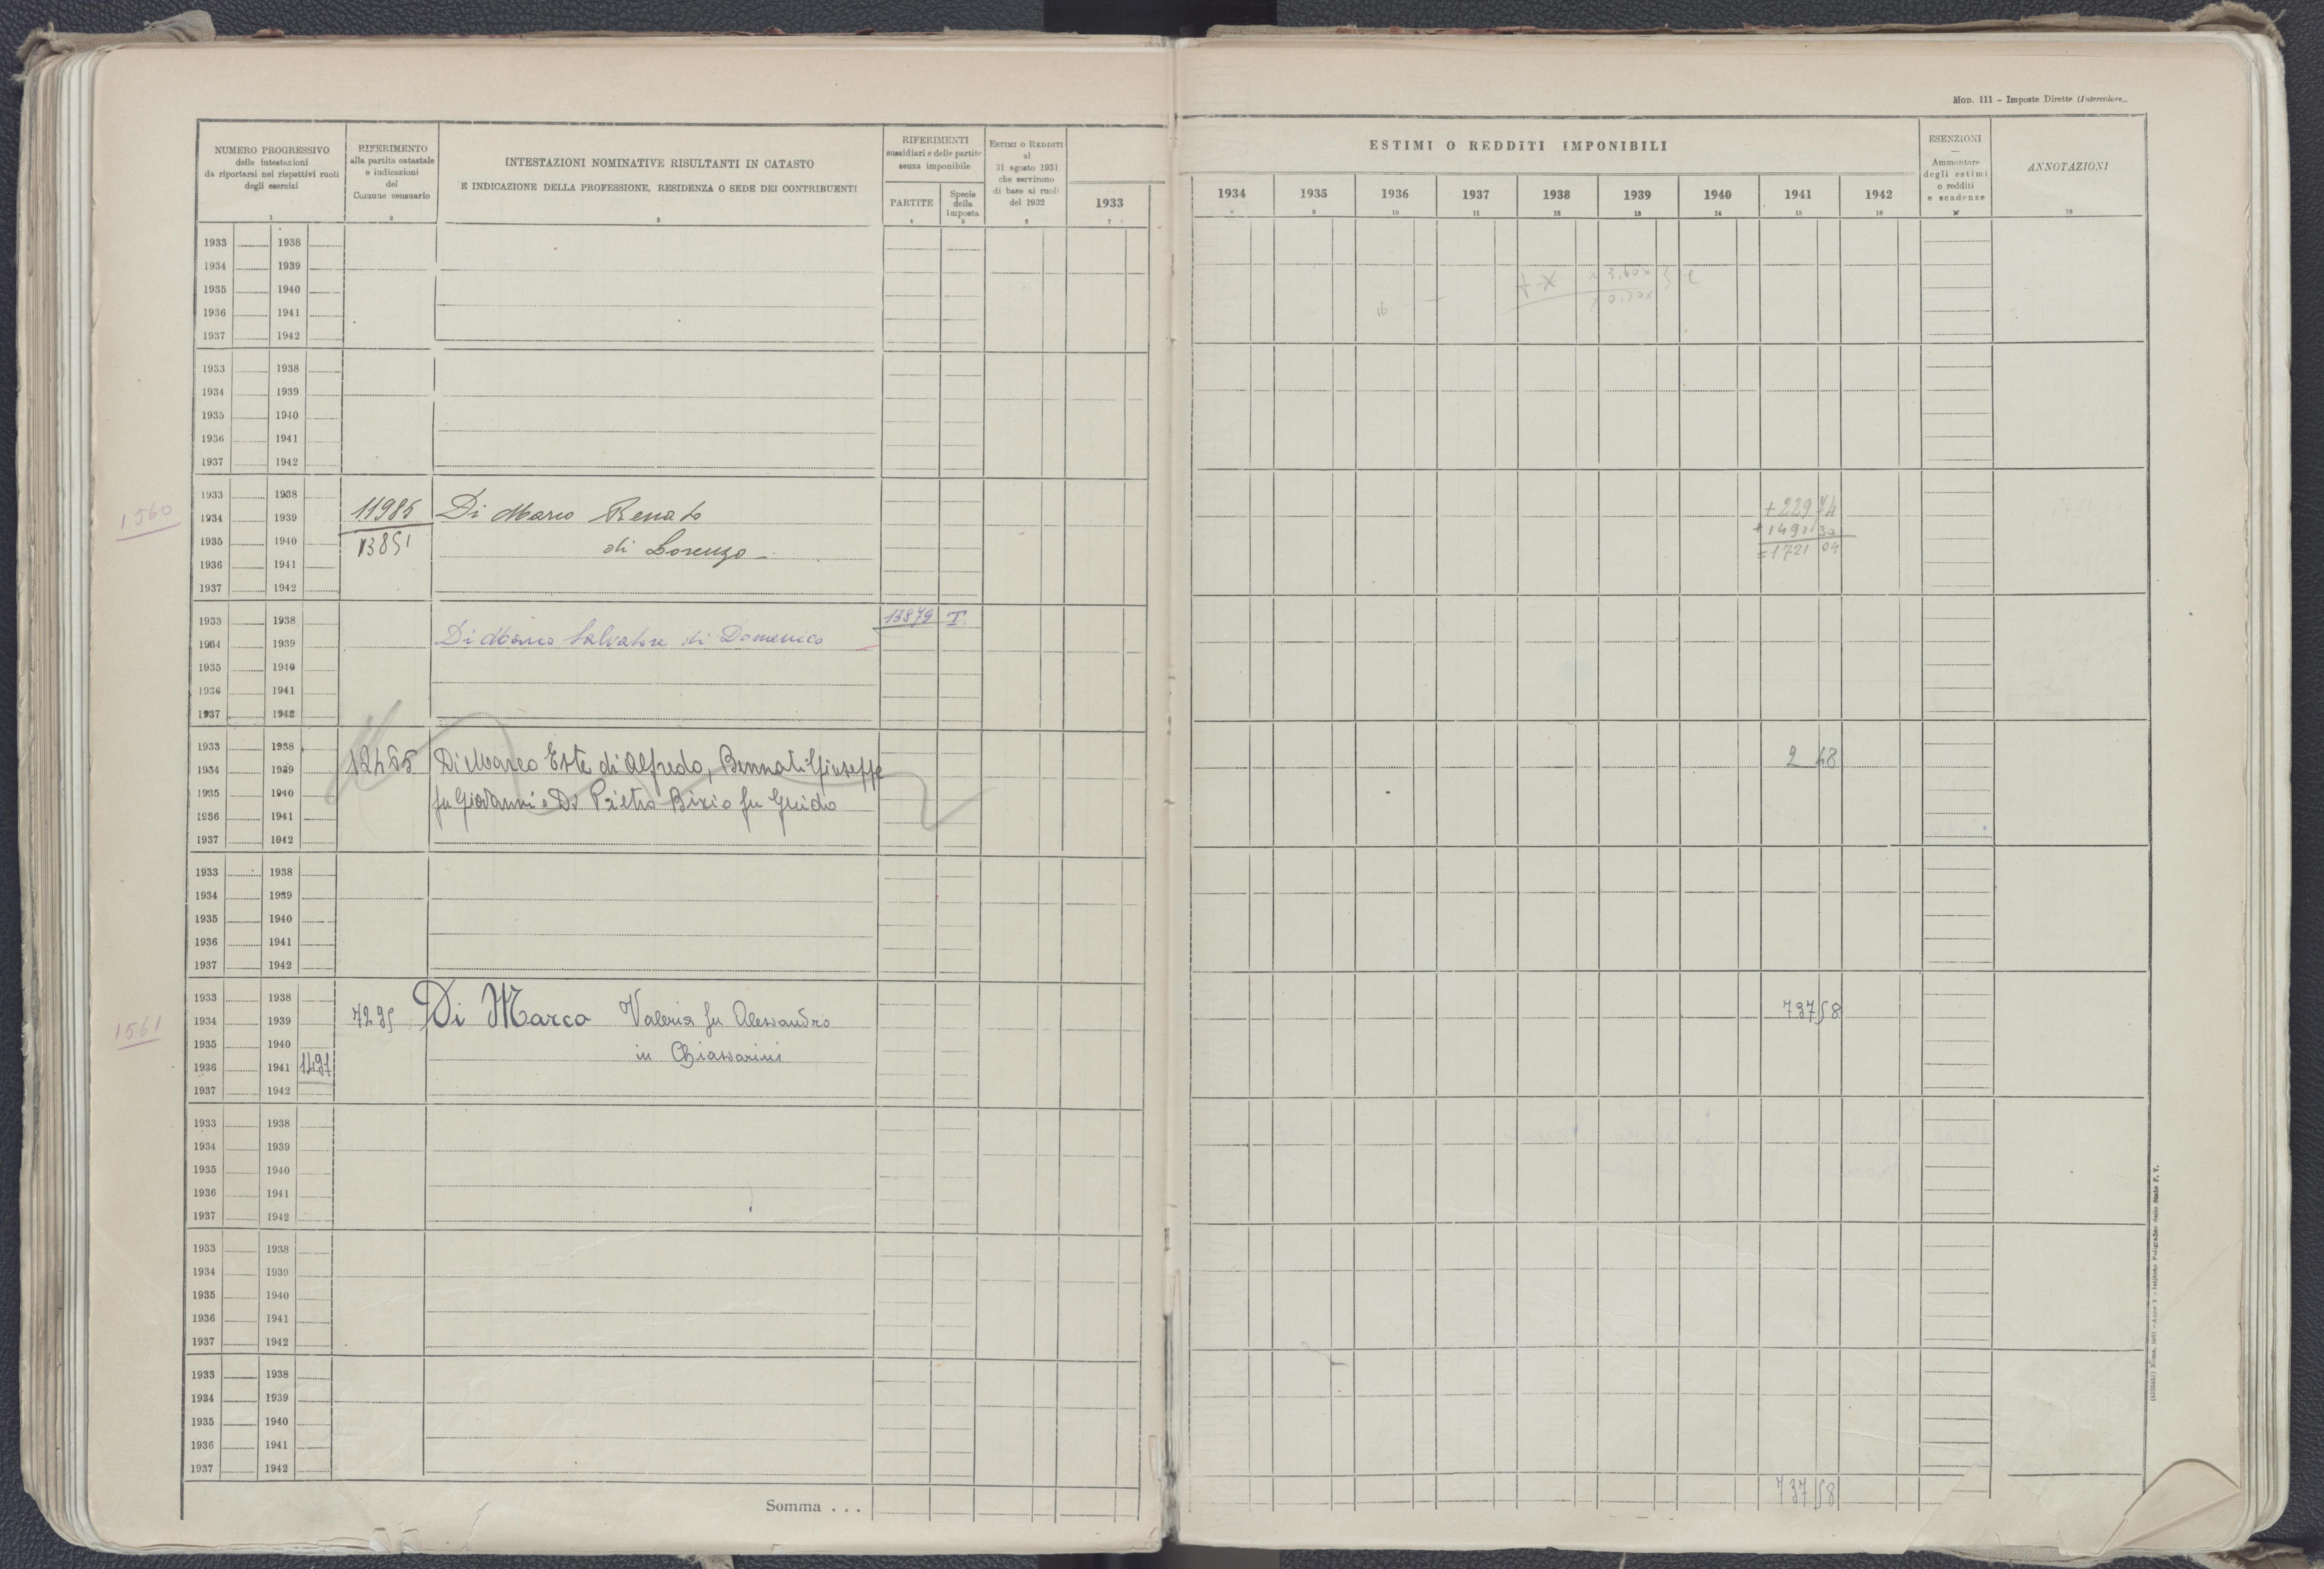 Mod. 111 - Imposte Dirette (Intercolare)
NUMERO PROGRESSIVO
delle intestazioni
da riportarsi nei rispettivi ruoli
degli esercizi
1
RIFERIMENTO
alla partita catastale
e indicazioni
del
Comune censuario
2
INTESTAZIONI NOMINATIVE RISULTANTI IN CATASTO
E INDICAZIONE DELLA PROFESSIONE, RESIDENZA O SEDE DEI CONTRIBUENTI
3
RIFERIMENTI
sussidiari e delle partite
senza imponibile
PARTITE
4
Specie
della
imposta
5
ESTIMI O REDDITI
al
31 agosto 1931
che servirono
di base ai ruoli
del 1932
6
1933
7
ESTIMI O REDDITI IMPONIBILI
1934 1935 1936 1937 1938 1939 1940 1941 1942
9 10 11 12 13 14 15 16
ESENZIONI
Ammontare
degli estimi
o redditi
e scadenze
ANNOTAZIONI
18
1933 1938
1934 1939
1935 1940
1936 1941
1937 1942
1933 1938
1934 1939
1935 1940
1936 1941
1937 1942
1560
1933 1938
1934 1939 11985 Di Marco Renato +229 74
1935 1940 13851 di Lorenzo +1491 30
1936 1941 =1721 04
1937 1942
1933 1938 13879 T.
1934 1939 Di Marco Salvatore di Domenico
1935 1940
1936 1941
1937 1942
1933 1938
1934 1939 12455 Di Marco Este di Alfredo, Bennati Giuseppe 2 48
1935 1940 fu Giovanni e Di Pietro Bixio fu Guido
1936 1941
1937 1942
1933 1938
1934 1939
1935 1940
1936 1941
1937 1942
1561
1933 1938
1934 1939 7235 Di Marco Valeria fu Alessandro 737 58
1935 1940 in Chiassarini
1936 1941 1497
1937 1942
1933 1938
1934 1939
1935 1940
1936 1941
1937 1942
1933 1938
1934 1939
1935 1940
1936 1941
1937 1942
1933 1938
1934 1939
1935 1940
1936 1941
1937 1942
Somma . . . 737 58